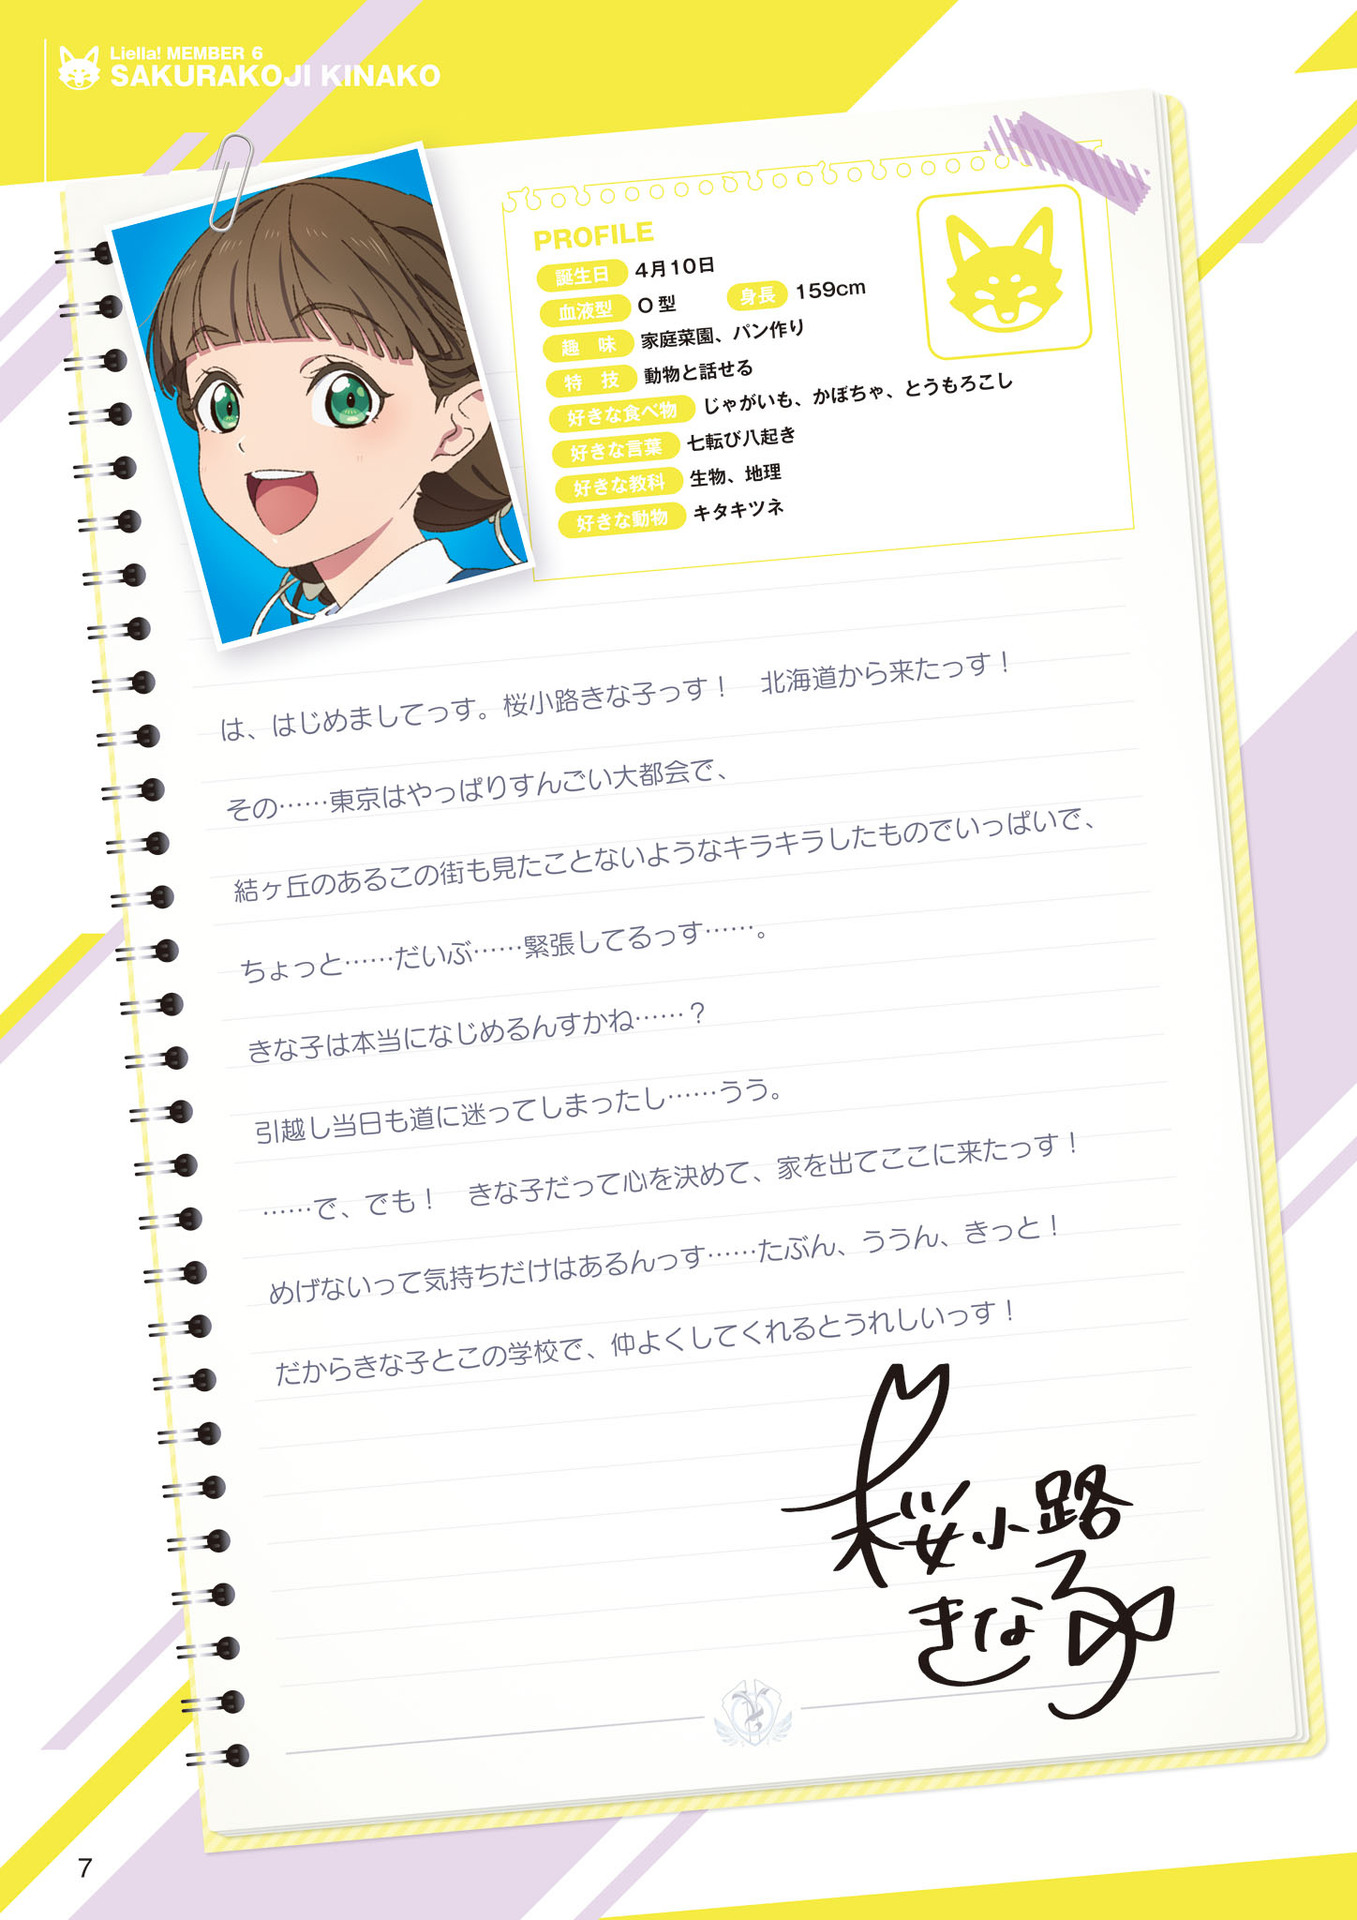 Liella! MEMBER 6
SAKURAKOJI KINAKO
PROFILE
誕生日 4月10日
血液型 O型 身長 159cm
趣味 家庭菜園、パン作り
特技 動物と話せる
好きな食べ物 じゃがいも、かぼちゃ、とうもろこし
好きな言葉 七転び八起き
好きな教科 生物、地理
好きな動物 キタキツネ
は、はじめましてっす。桜小路きな子っす！　北海道から来たっす！
その……東京はやっぱりすんごい大都会で、
結ヶ丘のあるこの街も見たことないようなキラキラしたものでいっぱいで、
ちょっと……だいぶ……緊張してるっす……。
きな子は本当になじめるんすかね……？
引越し当日も道に迷ってしまったし……うう。
……で、でも！　きな子だって心を決めて、家を出てここに来たっす！
めげないって気持ちだけはあるんっす……たぶん、ううん、きっと！
だからきな子とこの学校で、仲よくしてくれるとうれしいっす！
桜小路
きな子
7